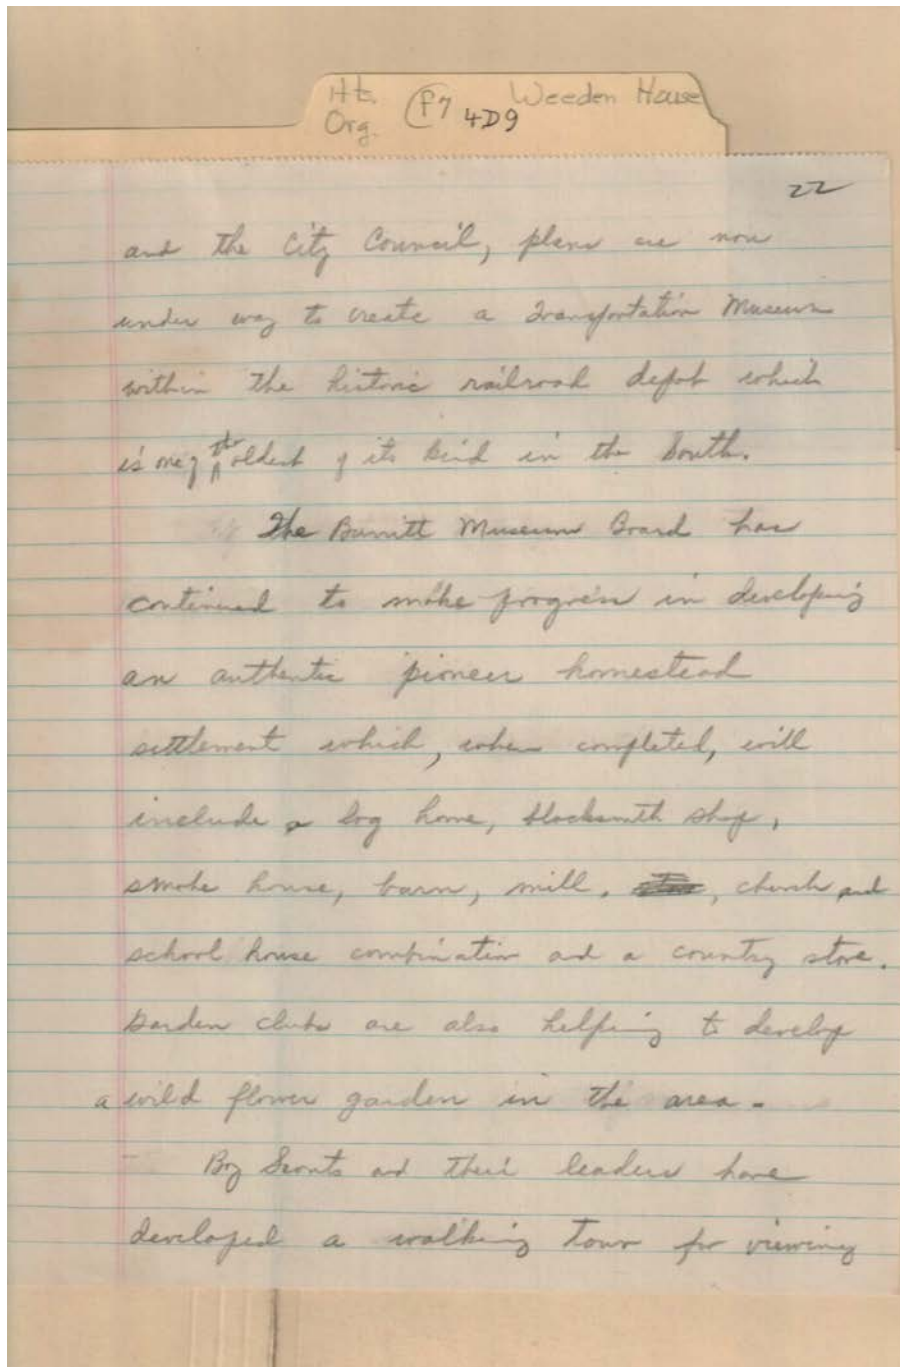 Ht. Org. F7 4D9 Weeden House
22
and the City Council, plans are now
under way to create a Transportation Museum
within the historic railroad depot which
is one of the oldest of its kind in the South.
The Burritt Museum Board has
continued to make progress in developing
an authentic pioneer homestead
settlement which, when completed, will
include a log home, blacksmith shop,
smoke house, barn, mill, , church and
school house combination and a country store.
Garden clubs are also helping to develop
a wild flower garden in the area.
Boy Scouts and their leaders have
developed a walking tour for viewing